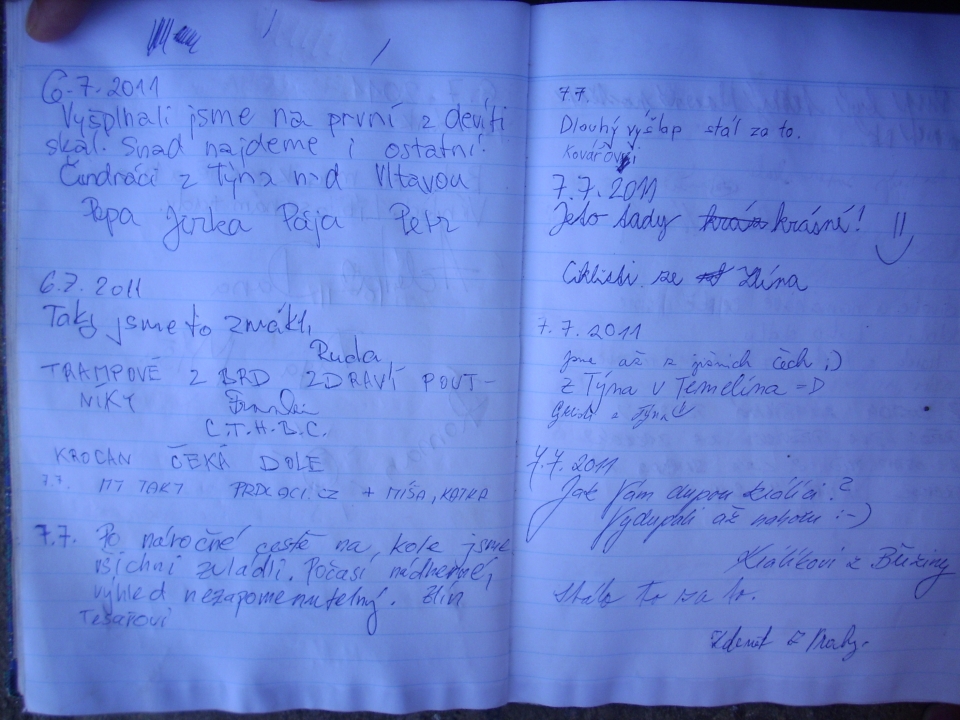 6.7.2011
Vyšplhali jsme na první z devíti
skal. Snad najdeme i ostatní.
Čundráci z Týna nad Vltavou
Pepa Jirka Pája Petr
6.7.2011
Taky jsme to zmákli
Ruda
TRAMPOVÉ Z BRD ZDRAVÍ POUT-
NÍKY
C.T.H.B.C.
KROCAN ČEKÁ DOLE
7.7. MY TAKY PRDLACI.CZ + MÍŠA, KATKA
7.7. Po náročné cestě na kole jsme
všichni zvládli. Počasí nádherné,
výhled nezapomenutelný. Zlín
Tesařovi
7.7.
Dlouhý výšlap stál za to.
Kovářovi
7.7.2011
Je to tady krásné!
Ciklisti ze Zlína
7.7.2011
jsme až z jižních čech ;)
z Týna u Temelína =D
7.7.2011
Jak Vám dupou králíci?
Vydupali až nahoru :-)
Králíkovi z Březiny
Stálo to za to.
Zdeněk z Prahy.